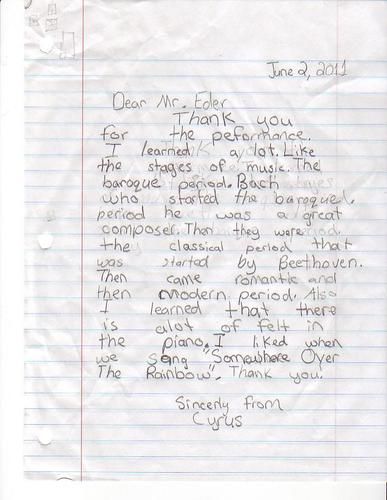 June 2, 2011
Dear Mr. Eder
Thank you
for the peformance.
I learned a lot. Like
the stages of music. The
baroque period. Bach
who started the baroque
period he was a great
composer. Then they were
the classical period that
was started by Beethoven.
Then came romantic and
then modern period. Also
I learned that there
is alot of felt in
the piano. I liked when
we sang "Somewhere Over
The Rainbow". Thank you.
Sincerly from
Cyrus